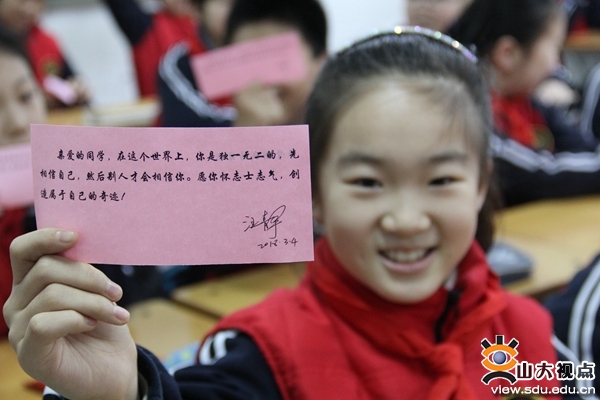 亲爱的同学，在这个世界上，你是独一无二的，先
相信自己，然后别人才会相信你。愿你怀志士志气，创
造属于自己的奇迹！
2015.3.4
山大视点
view.sdu.edu.cn